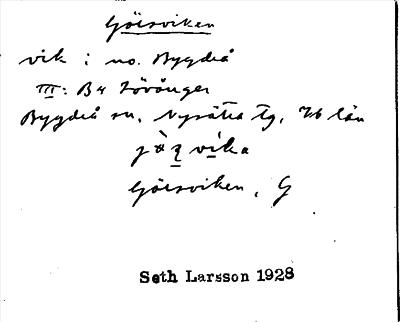 Göisviken
vik i no. Bygdeå
III: B4 Lövånger
Bygdeå sn, Nysätra tg, Vb län
Göisviken, G
Seth Larsson 1928